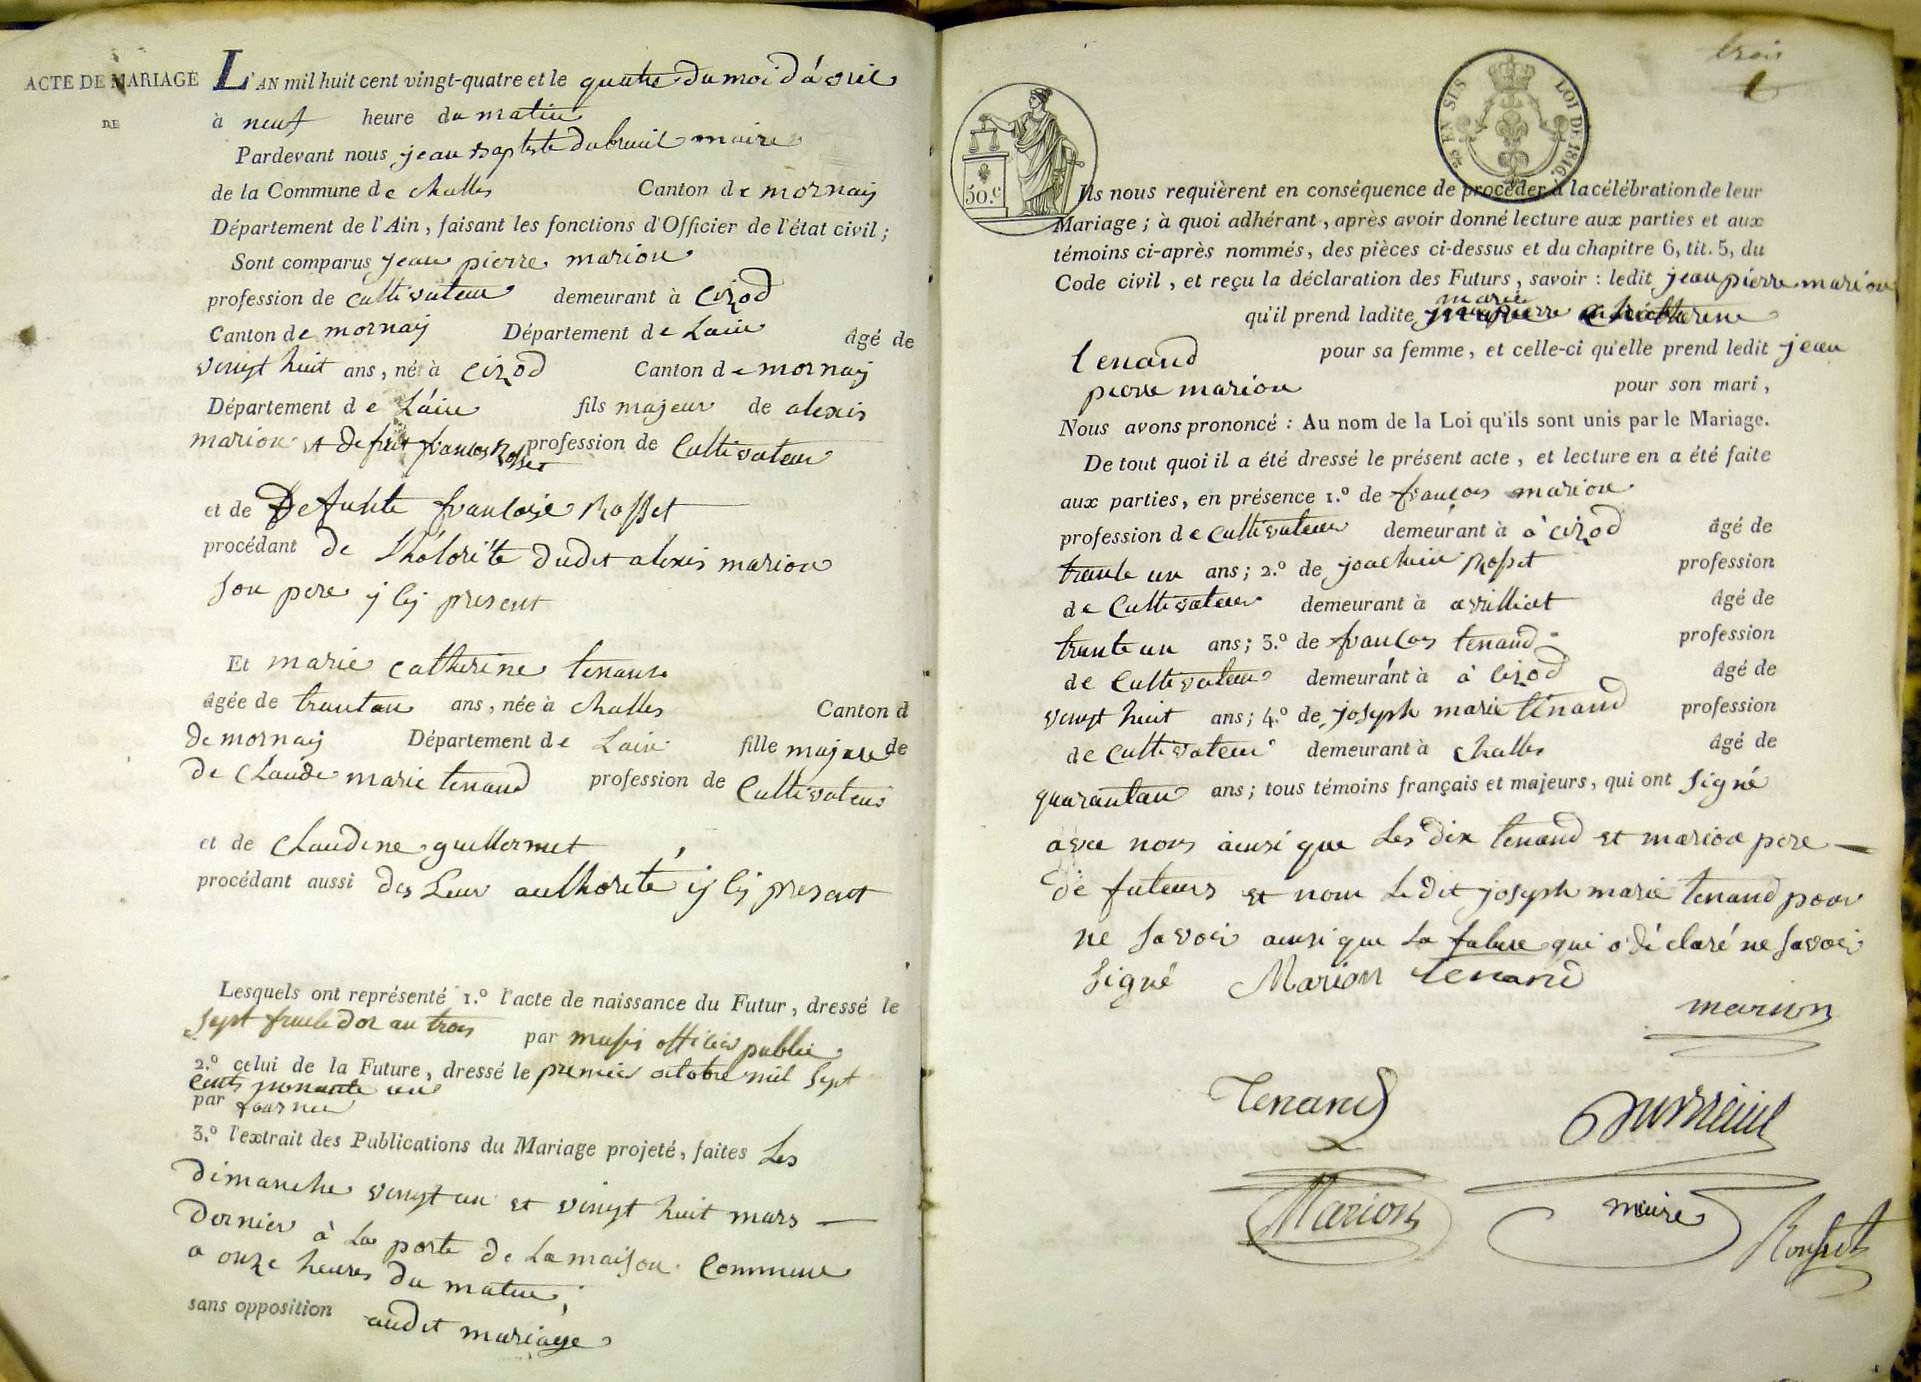 ACTE DE MARIAGE
DE
L'AN mil huit cent vingt-quatre et le quatre du moi d'avril
à neuf heure du matin
Pardevant nous jean Baptiste dubreuil maire
de la Commune de challes Canton de mornay
Département de l'Ain, faisant les fonctions d'Officier de l'état civil;
Sont comparus jean pierre marion
profession de cultivateur demeurant à cizod
Canton de mornay Département de Lain âgé de
vingt huit ans, né à cizod Canton de mornay
Département de L'ain fils majeur de alexis
marion et profession de Cultivateur
et de Defunte françoise Rosset
procédant de dudit alexis marion
son pere y cy present
Et marie catherine tenand
âgée de ans, née à challes Canton d
de mornay Département de Lain fille majeure de
de claude marie tenand profession de Cultivateur
et de claudine guillermet
procédant aussi des Leur authorité y cy present
Lesquels ont représenté 1.º l'acte de naissance du Futur, dressé le
sept fruictidor an trois par officier public
2.º celui de la Future, dressé le premier octobre mil sept
cents nonante un
par
3.º l'extrait des Publications du Mariage projeté, faites Les
dimanche vingt un et vingt huit mars
dernier à La porte de La maison Commune
a onze heures du matin,
sans opposition audit mariage
trois
50.c
25 EN SUS LOI DE 1816.
Ils nous requièrent en conséquence de procéder à la célébration de leur
Mariage; à quoi adhérant, après avoir donné lecture aux parties et aux
témoins ci-après nommés, des pièces ci-dessus et du chapitre 6, tit. 5, du
Code civil, et reçu la déclaration des Futurs, savoir: ledit jean pierre marion
marie
qu'il prend ladite
tenand pour sa femme, et celle-ci qu'elle prend ledit jean
pierre marion pour son mari,
Nous avons prononcé: Au nom de la Loi qu'ils sont unis par le Mariage.
De tout quoi il a été dressé le présent acte, et lecture en a été faite
aux parties, en présence 1.º de françois marion
profession de cultivateur demeurant à à cizod âgé de
trente un ans; 2.º de joachim Rosset profession
de Cultivateur demeurant à âgé de
trente un ans; 3.º de françois tenand profession
de Cultivateur demeurant à à cizod âgé de
vingt huit ans; 4.º de joseph marie tenand profession
de cultivateur demeurant à challes âgé de
ans; tous témoins français et majeurs, qui ont signé
avec nous ainsi que Les dix tenand et marion pere
de futeurs et nom Le dit joseph marie tenand pour
ne savoir ainsi que La future qui a déclaré ne savoir
signé Marion tenand
marion
Tenand
Dubreuil
Marion
maire
Rousset